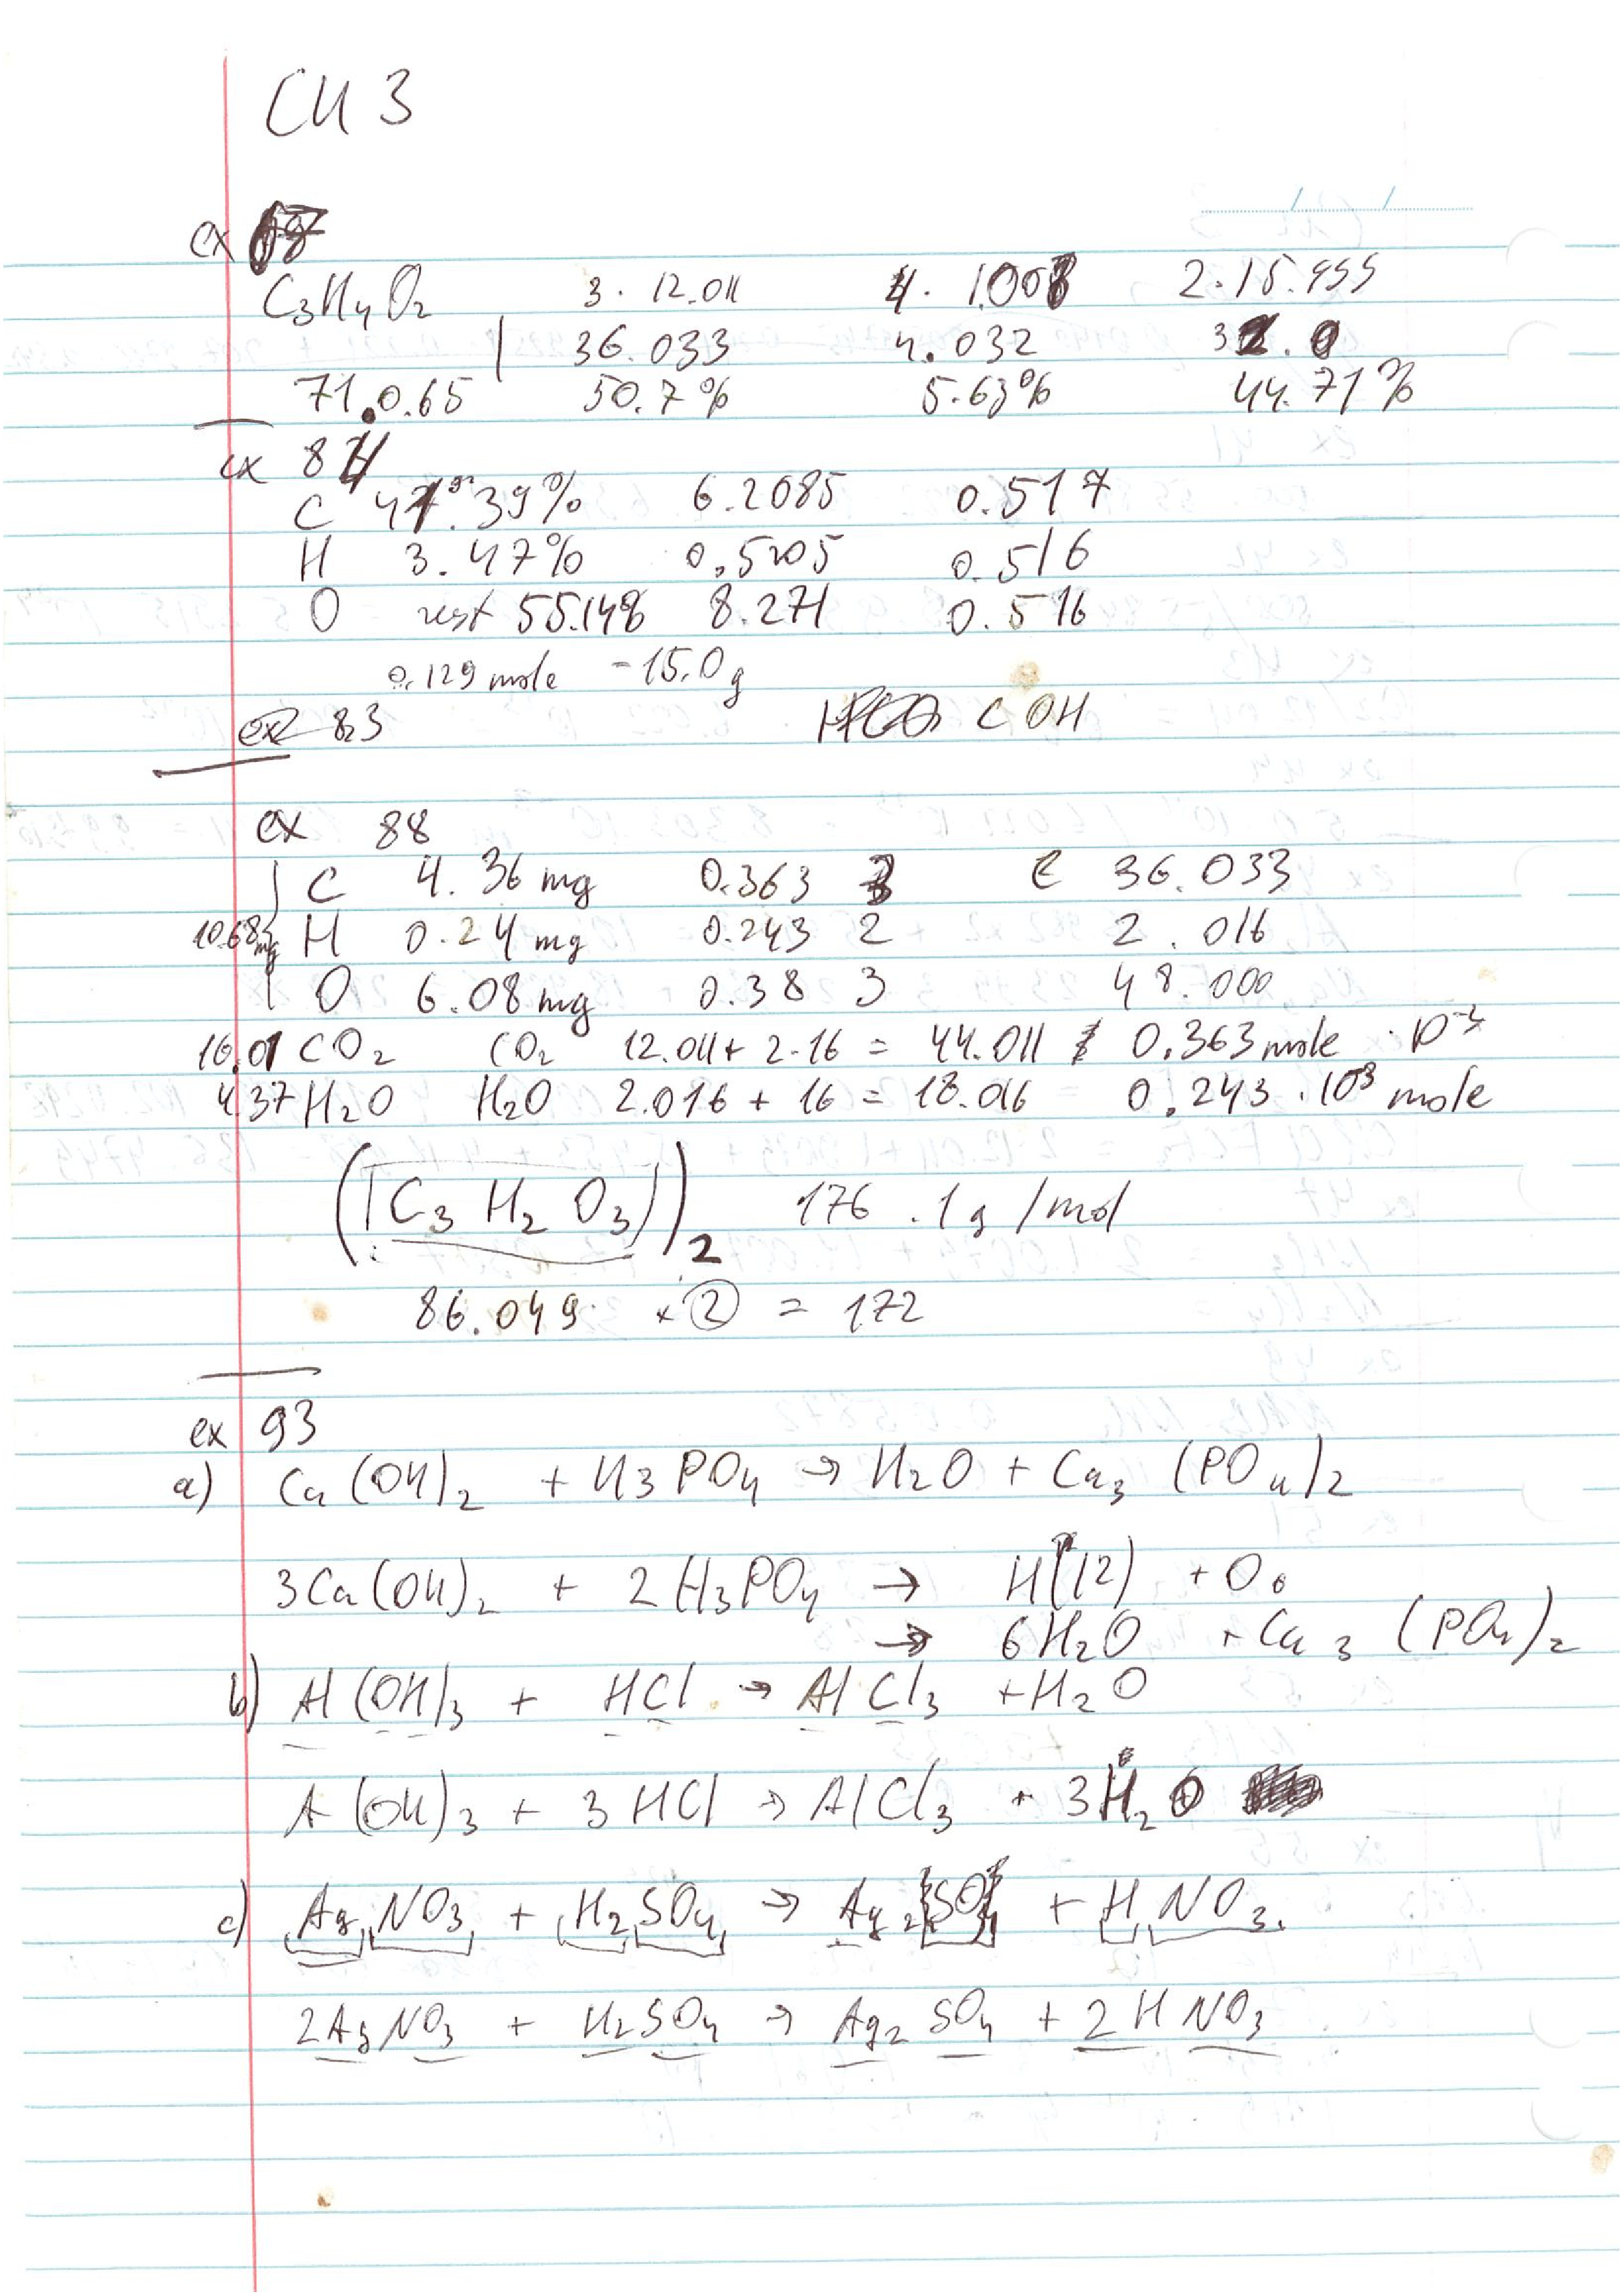 CH 3
ex
C3H4O2 3 · 12.011 4 · 1.008 2 · 15.999
36.033 4.032 32.0
71.0.65 50.7% 5.63% 44.71%
ex 84
C 41.39% 6.2085 0.517
H 3.47% 0.5205 0.516
O rest 55.14% 8.271 0.516
0.129 mole - 15.0g
ex 83 COH
ex 88
C 4.36 mg 0.363 3 C 36.033
10.68 mg H 0.24 mg 0.243 2 2.016
O 6.08 mg 0.38 3 48.000
16.01 CO2 CO2 12.011 + 2·16 = 44.011 0.363 mole · 10-3
4.37 H2O H2O 2.016 + 16 = 18.016 = 0.243 · 10-3 mole
(C3 H2 O3)2 176.1g/mol
86.049 × 2 = 172
ex 93
a) Ca(OH)2 + H3PO4 → H2O + Ca3(PO4)2
3Ca(OH)2 + 2H3PO4 → H(12) + O6
→ 6H2O + Ca3(PO4)2
b) Al(OH)3 + HCl → AlCl3 + H2O
A(OH)3 + 3HCl → AlCl3 + 3H2O
c) AgNO3 + H2SO4 → Ag2SO4 + HNO3
2AgNO3 + H2SO4 → Ag2SO4 + 2HNO3